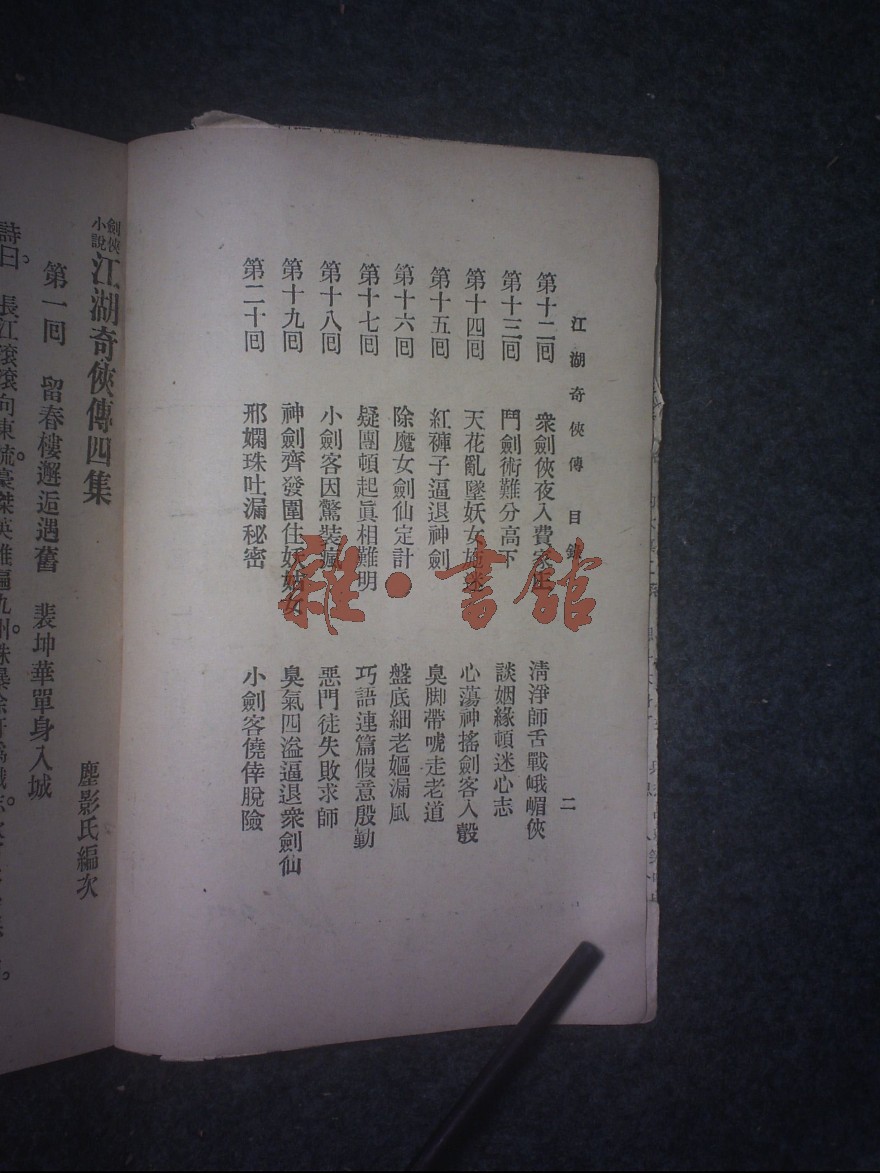 江湖奇俠傳 目錄 二
第十二回 衆劍俠夜入費家庄 清淨師舌戰峨嵋俠
第十三回 鬥劍術難分高下 談姻緣頓迷心志
第十四回 天花亂墜妖女施迷 心蕩神搖劍客入彀
第十五回 紅褲子逼退神劍 臭脚帶唬走老道
第十六回 除魔女劍仙定計 盤底細老嫗漏風
第十七回 疑團頓起眞相難明 巧語連篇假意殷勤
第十八回 小劍客因驚裝瘋 惡門徒失敗求師
第十九回 神劍齊發圍住妖姑女 臭氣四溢逼退衆劍仙
第二十回 邢嫻珠吐漏秘密 小劍客僥倖脫險
劍俠小說 江湖奇俠傳四集
塵影氏編次
第一回 留春樓邂逅遇舊 裴坤華單身入城
詩曰。 長江滾滾向東流。豪傑英雄遍九州。
雜·書館